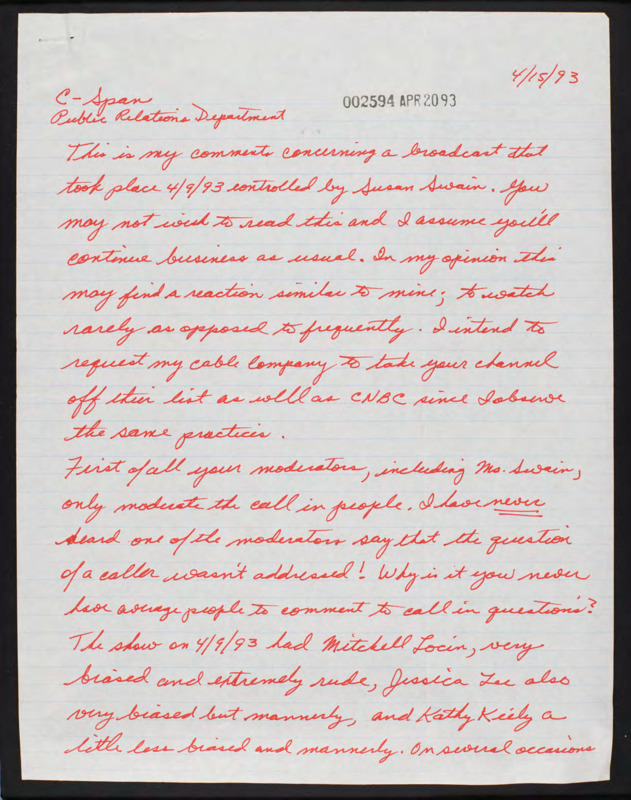 4/15/93
C-Span
Public Relations Department
002594 APR 20 93
This is my comments concerning a broadcast that
took place 4/9/93 controlled by Susan Swain. You
may not wish to read this and I assume you'll
continue business as usual. In my opinion this
may find a reaction similar to mine; to watch
rarely as opposed to frequently. I intend to
request my cable company to take your channel
off their list as well as CNBC since I observe
the same practices.
First of all your moderators, including Ms. Swain,
only moderate the call in people. I have never
heard one of the moderators say that the question
of a caller wasn't addressed! Why is it you never
have average people to comment to call in questions?
The show on 4/9/93 had Mitchell Locin, very
biased and extremely rude, Jessica Lee also
very biased but mannerly, and Kathy Kiely a
little less biased and mannerly. On several occasions